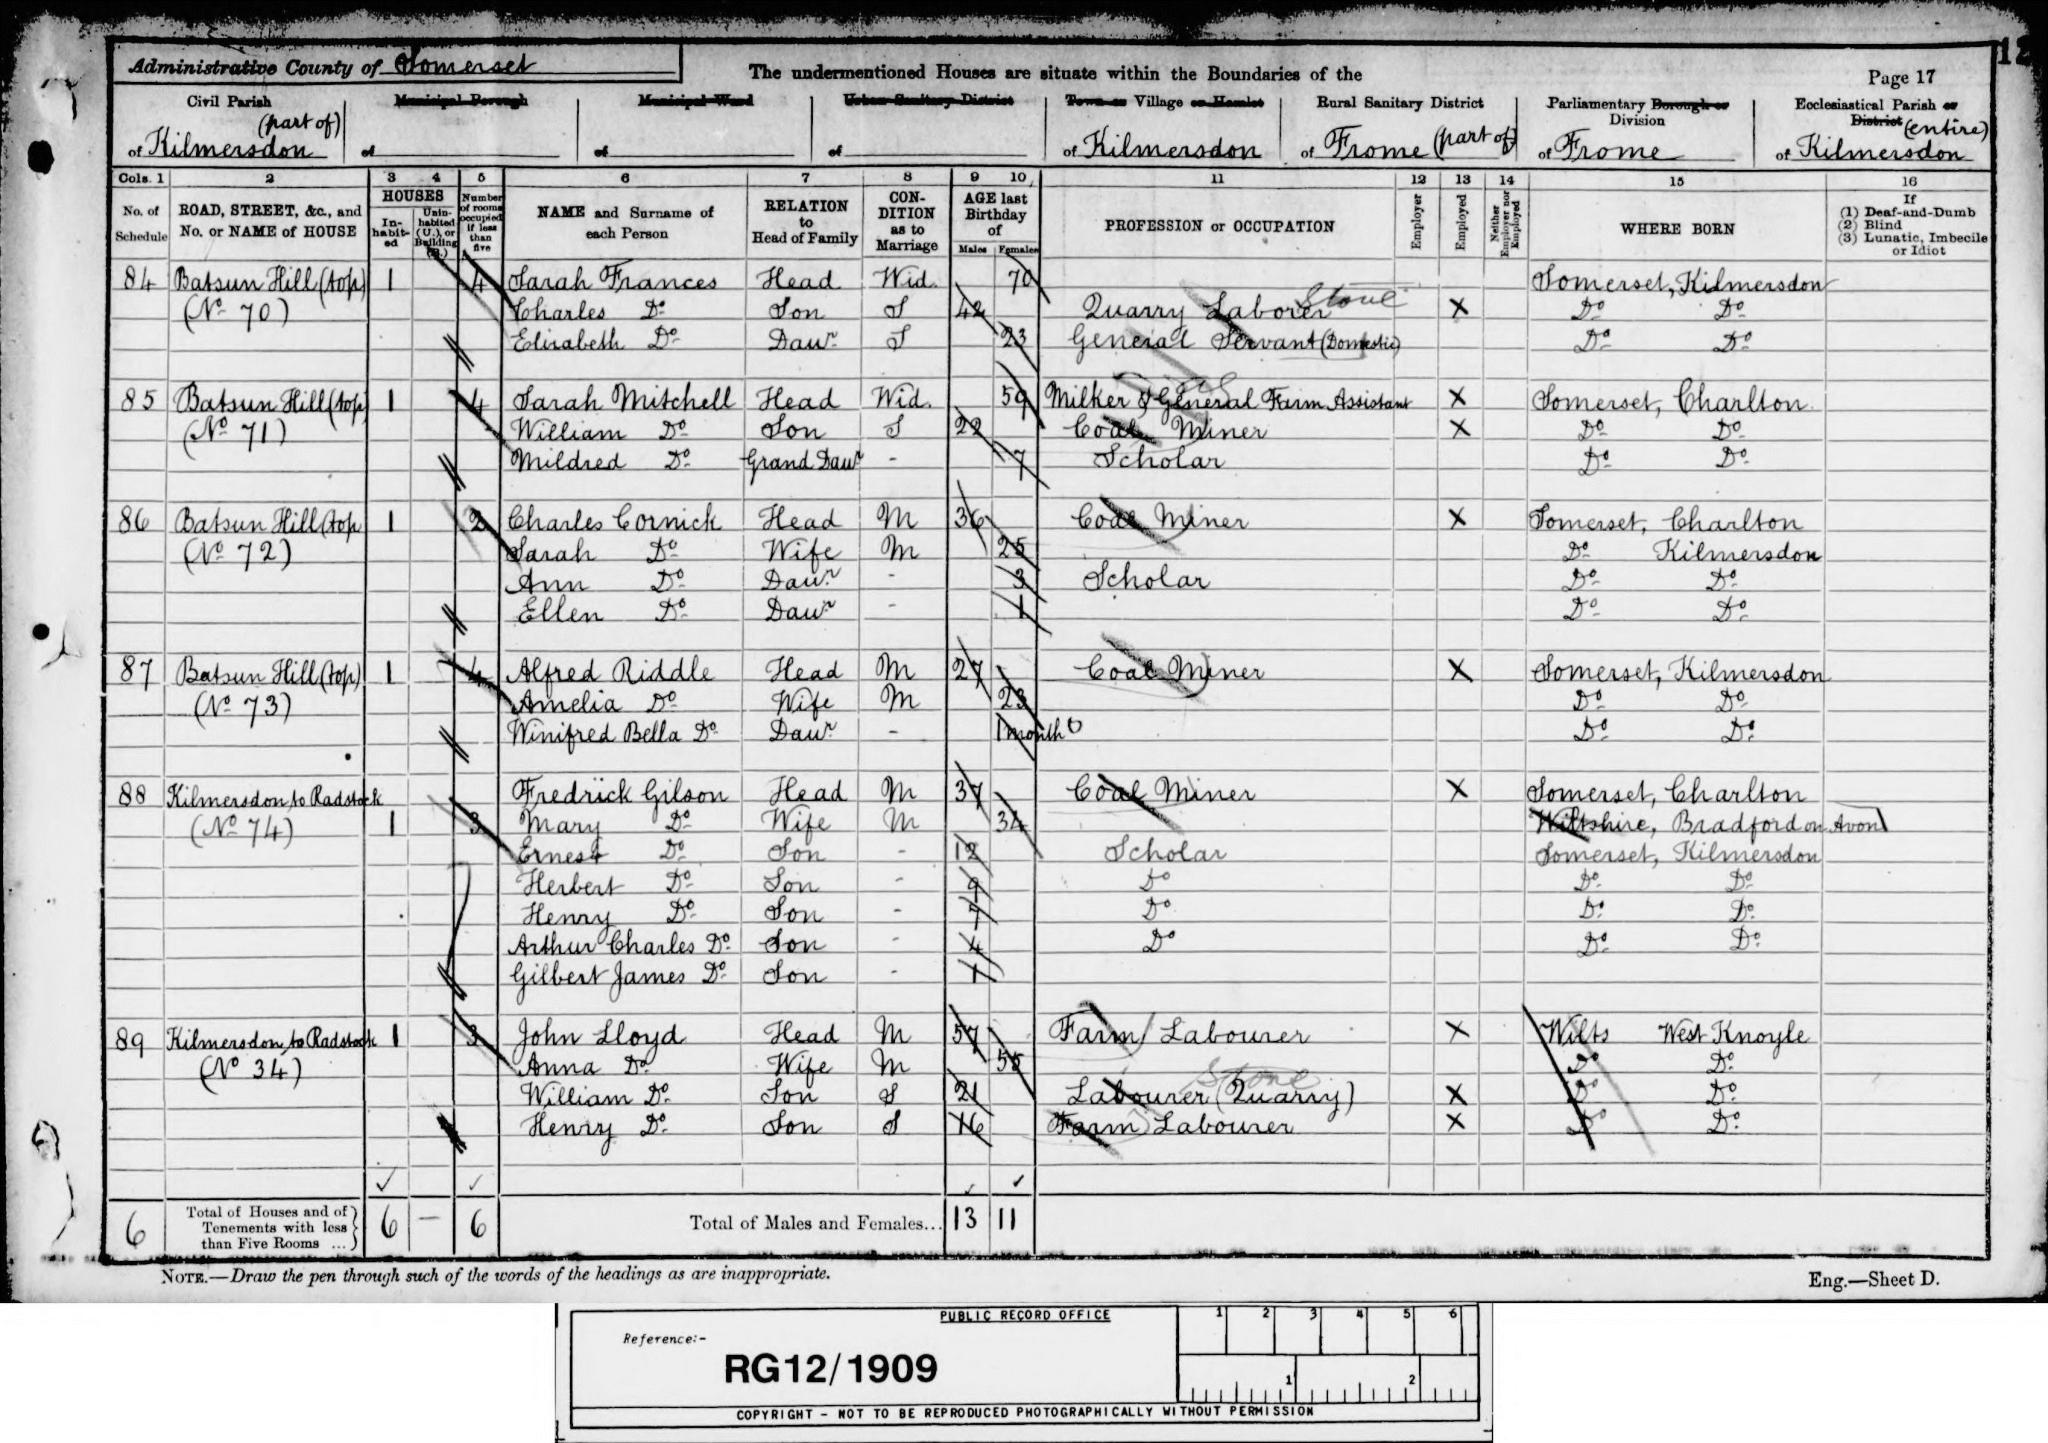 Administrative County of Somerset
The undermentioned Houses are situate within the Boundaries of the
Page 17
12
Civil Parish of Kilmersdon (part of)
Municipal Borough of
Municipal Ward of
Urban Sanitary District of
Town or Village or Hamlet of Kilmersdon
Rural Sanitary District of Frome (part of)
Parliamentary Borough or Division of Frome
Ecclesiastical Parish or District of Kilmersdon (entire)
Cols. 1 2 3 4 5 6 7 8 9 10 11 12 13 14 15 16
No. of Schedule
ROAD, STREET, &c., and No. or NAME of HOUSE
HOUSES
In-habit-ed
Unin-habited (U.), or Building (B.)
Number of rooms occupied if less than five
NAME and Surname of each Person
RELATION to Head of Family
CON-DITION as to Marriage
AGE last Birthday of
Males Females
PROFESSION or OCCUPATION
Employer
Employed
Neither Employer nor Employed
WHERE BORN
If (1) Deaf-and-Dumb (2) Blind (3) Lunatic, Imbecile or Idiot
84 Batsun Hill (top) 1 4 Sarah Frances Head Wid. 70 Somerset, Kilmersdon
(No 70) Charles Do Son S 42 Quarry Laborer Stone X Do Do
Elizabeth Do Daur S 23 General Servant (Domestic) Do Do
85 Batsun Hill (top) 1 4 Sarah Mitchell Head Wid. 59 Milker & General Farm Assistant X Somerset, Charlton
(No 71) William Do Son S 22 Coal Miner X Do Do
Mildred Do Grand Daur - 7 Scholar Do Do
86 Batsun Hill (top 1 2 Charles Cornick Head M 36 Coal Miner X Somerset, Charlton
(No 72) Sarah Do Wife M 25 Do Kilmersdon
Ann Do Daur - 3 Scholar Do Do
Ellen Do Daur - 1 Do Do
87 Batsun Hill (top) 1 4 Alfred Riddle Head M 27 Coal Miner X Somerset, Kilmersdon
(No 73) Amelia Do Wife M 23 Do Do
Winifred Bella Do Daur - 1 month Do Do
88 Kilmersdon to Radstock Fredrick Gilson Head M 37 Coal Miner X Somerset, Charlton
(No 74) 1 3 Mary Do Wife M 34 Wiltshire, Bradford on Avon
Ernest Do Son - 12 Scholar Somerset, Kilmersdon
Herbert Do Son - 9 Do Do Do
Henry Do Son - 7 Do Do Do
Arthur Charles Do Son - 4 Do Do Do
Gilbert James Do Son - 1
89 Kilmersdon to Radstock 1 3 John Lloyd Head M 57 Farm Labourer X Wilts West Knoyle
(No 34) Anna Do Wife M 55 Do Do
William Do Son S 21 Labourer (Quarry) Stone X Do Do
Henry Do Son S 16 Farm Labourer X Do Do
6 Total of Houses and of Tenements with less than Five Rooms ... 6 — 6 Total of Males and Females... 13 11
NOTE.—Draw the pen through such of the words of the headings as are inappropriate.
Eng.—Sheet D.
PUBLIC RECORD OFFICE
1 2 3 4 5 6
Reference:-
RG12/1909
1 2
COPYRIGHT - NOT TO BE REPRODUCED PHOTOGRAPHICALLY WITHOUT PERMISSION